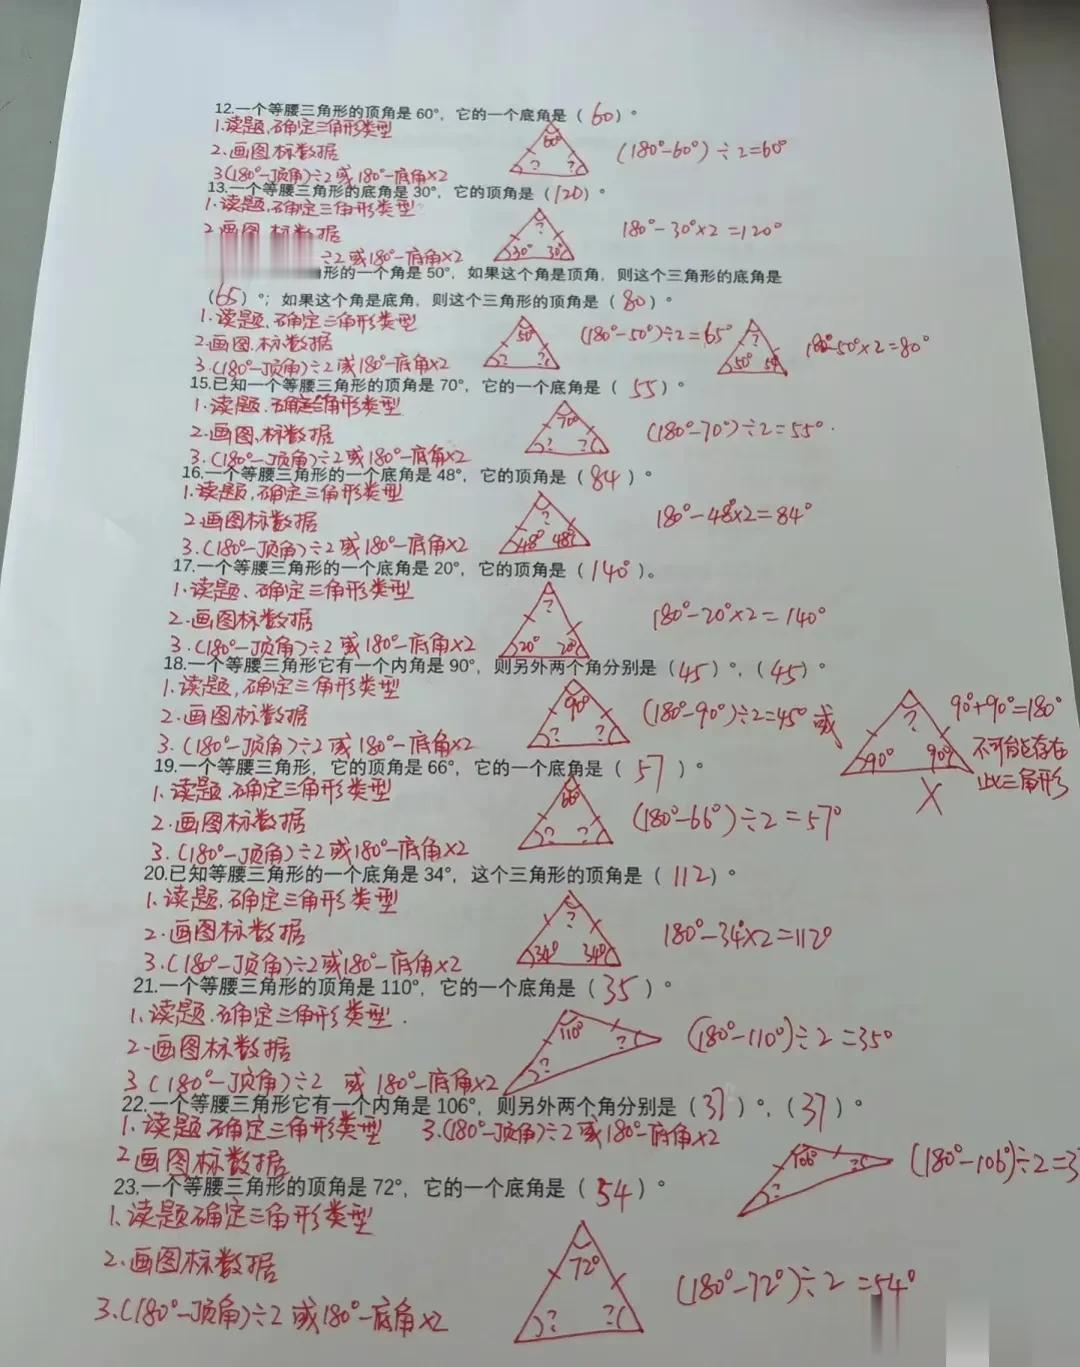 12.一个等腰三角形的顶角是 60°，它的一个底角是（60）°
1.读题,确定三角形类型
2.画图标数据
60° ? ?
(180°-60°)÷2=60°
3(180°-顶角)÷2或180°-底角×2
13.一个等腰三角形的底角是 30°，它的顶角是（120）°
1.读题,确定三角形类型
2画图 标数据
? 30° 30°
180°-30°×2=120°
÷2或180°-底角×2
形的一个角是 50°，如果这个角是顶角，则这个三角形的底角是
（65）°；如果这个角是底角，则这个三角形的顶角是（80）°
1.读题,确定三角形类型
2.画图.标数据
50° ? ?
(180°-50°)÷2=65°
? 50° 50°
180°-50°×2=80°
3.(180°-顶角)÷2或180°-底角×2
15.已知一个等腰三角形的顶角是 70°，它的一个底角是（55）°
1.读题.确定三角形类型
2.画图.标数据
70° ? ?
(180°-70°)÷2=55°.
3.(180°-顶角)÷2或180°-底角×2
16.一个等腰三角形的一个底角是 48°，它的顶角是（84）°
1.读题,确定三角形类型
2画图标数据
? 48° 48°
180°-48°×2=84°
3.(180°-顶角)÷2或180°-底角×2
17.一个等腰三角形的一个底角是 20°，它的顶角是（140°）。
1.读题、确定三角形类型
2.画图标数据
? 20° 20°
180°-20°×2=140°
3.(180°-顶角)÷2或180°-底角×2
18.一个等腰三角形它有一个内角是 90°，则另外两个角分别是（45）°，（45）°
1.读题,确定三角形类型
2.画图标数据
90° ? ?
(180°-90°)÷2=45°或
? 90° 90°
90°+90°=180°
不可能存在
此三角形
X
3.(180°-顶角)÷2或180°-底角×2
19.一个等腰三角形，它的顶角是 66°，它的一个底角是（57）°
1.读题.确定三角形类型
2.画图标数据
66° ? ?
(180°-66°)÷2=57°
3.(180°-顶角)÷2或180°-底角×2
20.已知等腰三角形的一个底角是 34°，这个三角形的顶角是（112）°
1.读题.确定三角形类型
2.画图标数据
? 34° 34°
180°-34°×2=112°
3.(180°-顶角)÷2或180°-底角×2
21.一个等腰三角形的顶角是 110°，它的一个底角是（35）°
1.读题.确定三角形类型.
2.画图标数据
110° ? ?
(180°-110°)÷2=35°
3(180°-顶角)÷2 或 180°-底角×2
22.一个等腰三角形它有一个内角是 106°，则另外两个角分别是（37）°，（37）°
1.读题确定三角形类型 3.(180°-顶角)÷2或180°-底角×2
2画图标数据
106° ?
(180°-106°)÷2=3
23.一个等腰三角形的顶角是 72°，它的一个底角是（54）°
1.读题确定三角形类型
2.画图标数据
72° ? ?
(180°-72°)÷2=54°
3.(180°-顶角)÷2或180°-底角×2